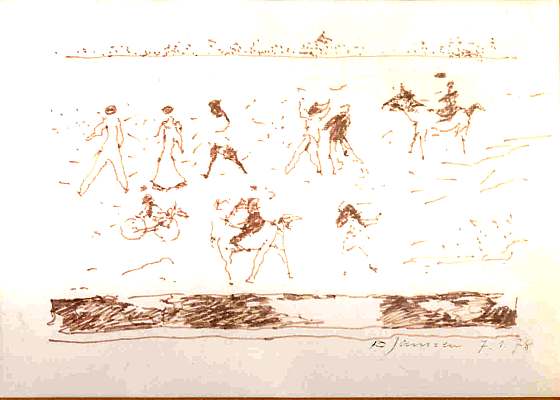 Janssen 7.1.78